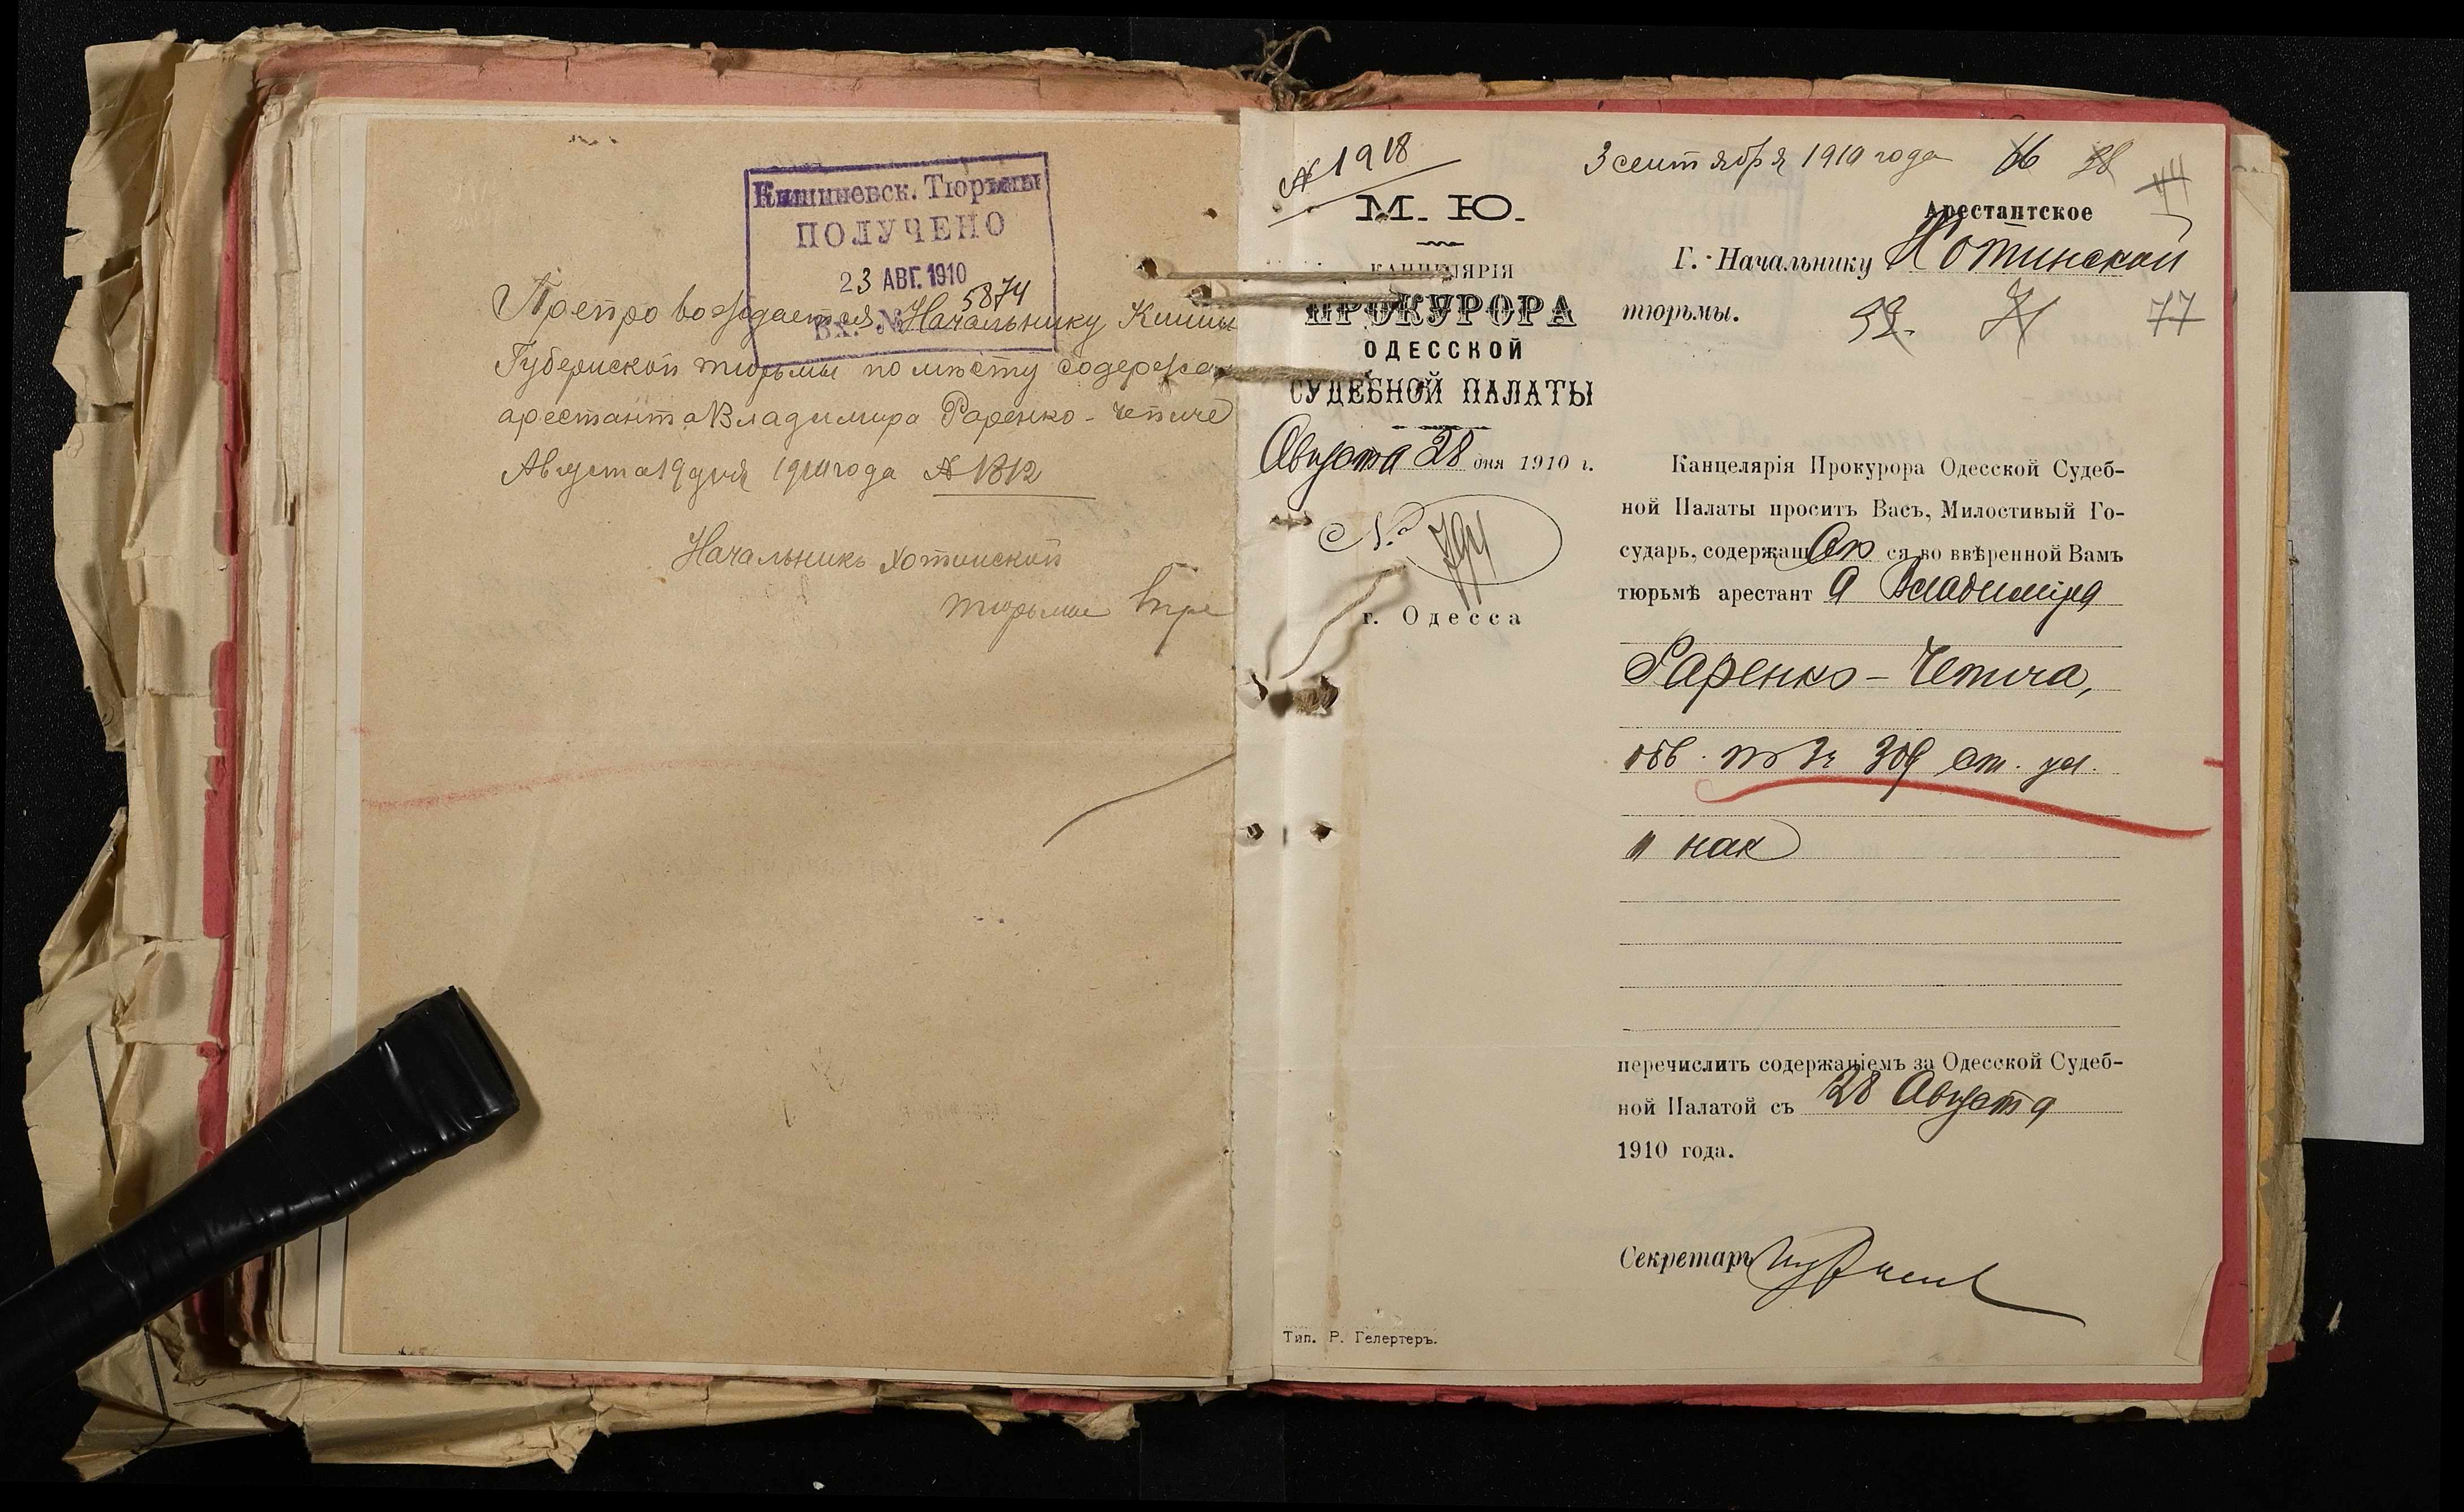 Кишиневск. Тюрьмы
ПОЛУЧЕНО
23 АВГ. 1910
Вх. № 5874
Препровождается Начальнику Кишин
Губернской тюрьмы по месту содержа
арестанта Владимира Раренко-Чепиче
Августа 19 дня 1910 года № 1812
Начальникъ Хотинской
тюрьмы
№ 1918
М. Ю.
КАНЦЕЛЯРІЯ
ПРОКУРОРА
ОДЕССКОЙ
СУДЕБНОЙ ПАЛАТЫ
Августа 28 дня 1910 г.
№
г. Одесса
Тип. Р. Гелертеръ.
3 сентября 1910 года 66 38 44
Арестантское
Г. Начальнику Хотинской
тюрьмы. 77
Канцелярія Прокурора Одесской Судеб-
ной Палаты проситъ Васъ, Милостивый Го-
сударь, содержащ ся во ввѣренной Вамъ
тюрьмѣ арестант а Владиміра
Раренко-Чепича,
обв. по 3ч 309 ст. ул.
и нак
перечислить содержаніемъ за Одесской Судеб-
ной Палатой съ 28 Августа
1910 года.
Секретарь